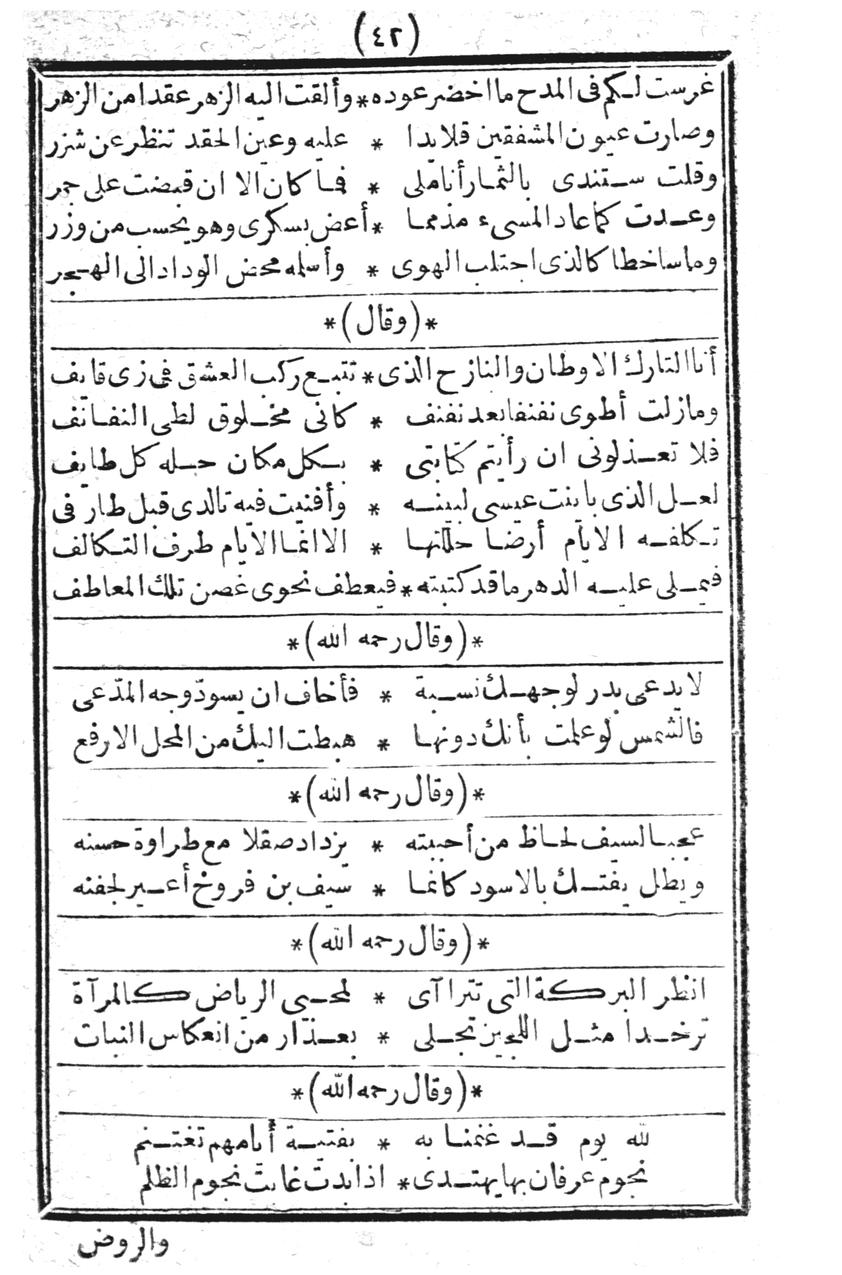 (٤٢)
غرست لكم فى المدح ما اخضر عوده * وألقت اليه الزهر عقدا من الزهر
وصارت عيون المشفقين قلايدا * عليه وعين الحقد تنظر عن شزر
وقلت ستندى بالثمار أناملى * فما كان الا ان قبضت على جمر
وعدت كما عاد المسىء مذمما * أعض بسكرى وهو يحسب من وزر
وما ساخطا كالذى اجتلب الهوى * وأسلمه محض الوداد الى الهجر
*(وقال)*
أنا التارك الاوطان والنازح الذى * تتبع ركب العشق فى زى قايف
ومازلت أطوى نفنفا بعد نفنف * كانى مخلوق لطى النفانف
فلا تعذلونى ان رأيتم كتابتى * بكل مكان حله كل طايف
لعل الذى باينت عيسى لبينه * وأفنيت فيه تالدى قبل طارفى
تكلفه الايام أرضا حللتها * الا انما الايام طرف التكالف
فيملى عليه الدهر ما قد كتبته * فيعطف نحوى غصن تلك المعاطف
*(وقال رحمه الله)*
لا يدعى بدر لوجهك نسبة * فأخاف ان يسود وجه المدّعى
فالشمس لو علمت بأنك دونها * هبطت اليك من المحل الارفع
*(وقال رحمه الله)*
عجبا لسيف لحاظ من أحببته * يزداد صقلا مع طراوة حسنه
ويظل يفتك بالاسود كانما * سيف بن فروخ أعير لجفنه
*(وقال رحمه الله)*
انظر البركة التى تتراآى * لمحيى الرياض كالمرآة
تر خدا مثل اللجين تجلى * بعذار من انعكاس النبات
*(وقال رحمه الله)*
لله يوم قد غنمنا به * بفتية أيامهم تغتنم
نجوم عرفان بها يهتدى * اذا بدت غابت نجوم الظلم
والروض